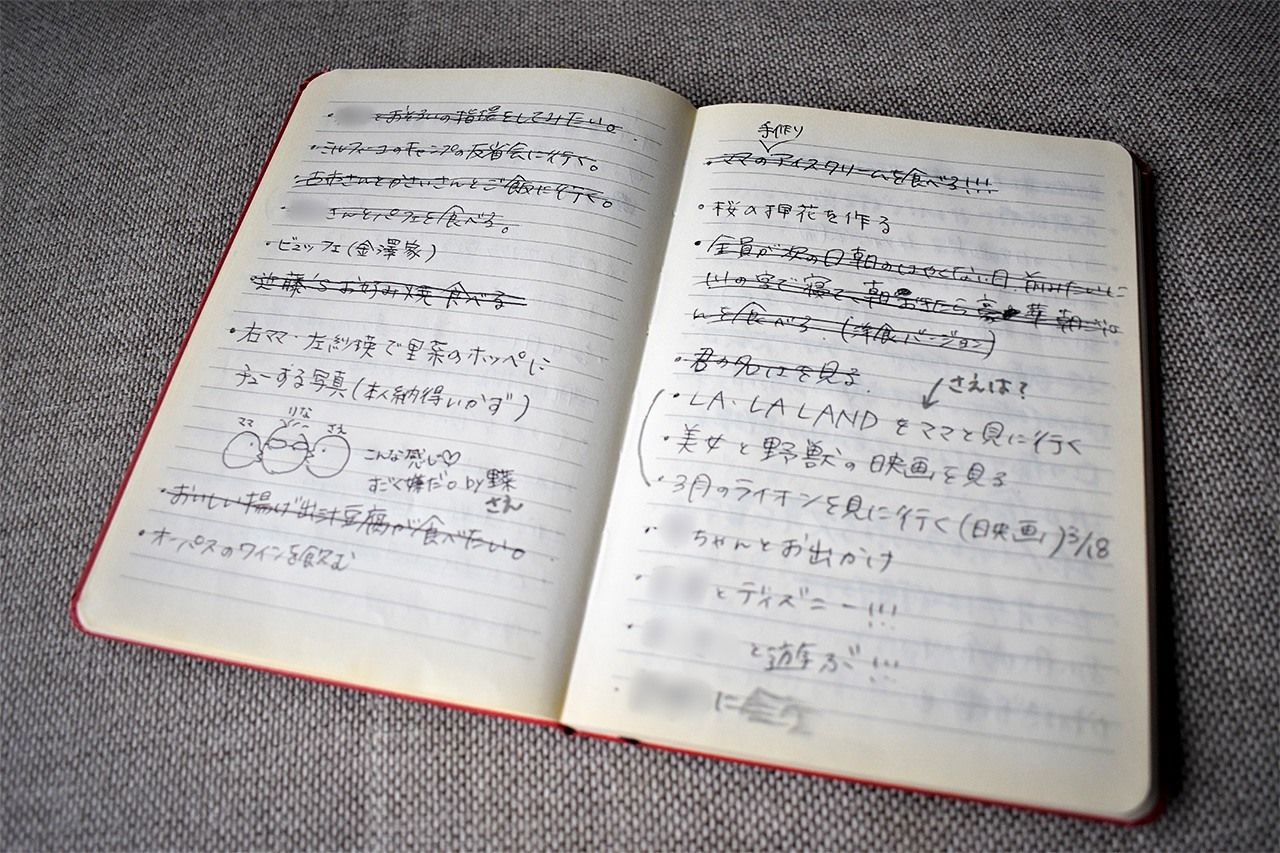 ・とおそろいの指環をしてみたい。
・ミルフィーユのキャンプの反省会に行く。
・古市さんとかさいさんとご飯に行く。
・さんとパフェを食べる。
・ビュッフェ(金澤家)
・近藤'sお好み焼 食べる
・右ママ・左紗瑛で里菜のホッペに
チューする写真(本人納得いかず)
ママ りな さえ
こんな感じ♡
すごく嫌だ。by里菜
さえ
・おいしい揚げ出汁豆腐が食べたい。
・オーパスのワインを飲む
手作り
・ママのアイスクリームを食べる!!!
・桜の押花を作る
・全員が次の日朝のはやくない日、前みたいに
1Fの室で寝て、朝起きたら豪華朝ごは
んを食べる。(洋食バージョン)
・君の名はを見る。
さえは?
・LA・LA LANDをママと見に行く
・美女と野獣の映画を見る
・3月のライオンを見に行く(映画)3/18
・ちゃんとお出かけ
・とディズニー!!!
・と遊ぶ!!!
・に会う